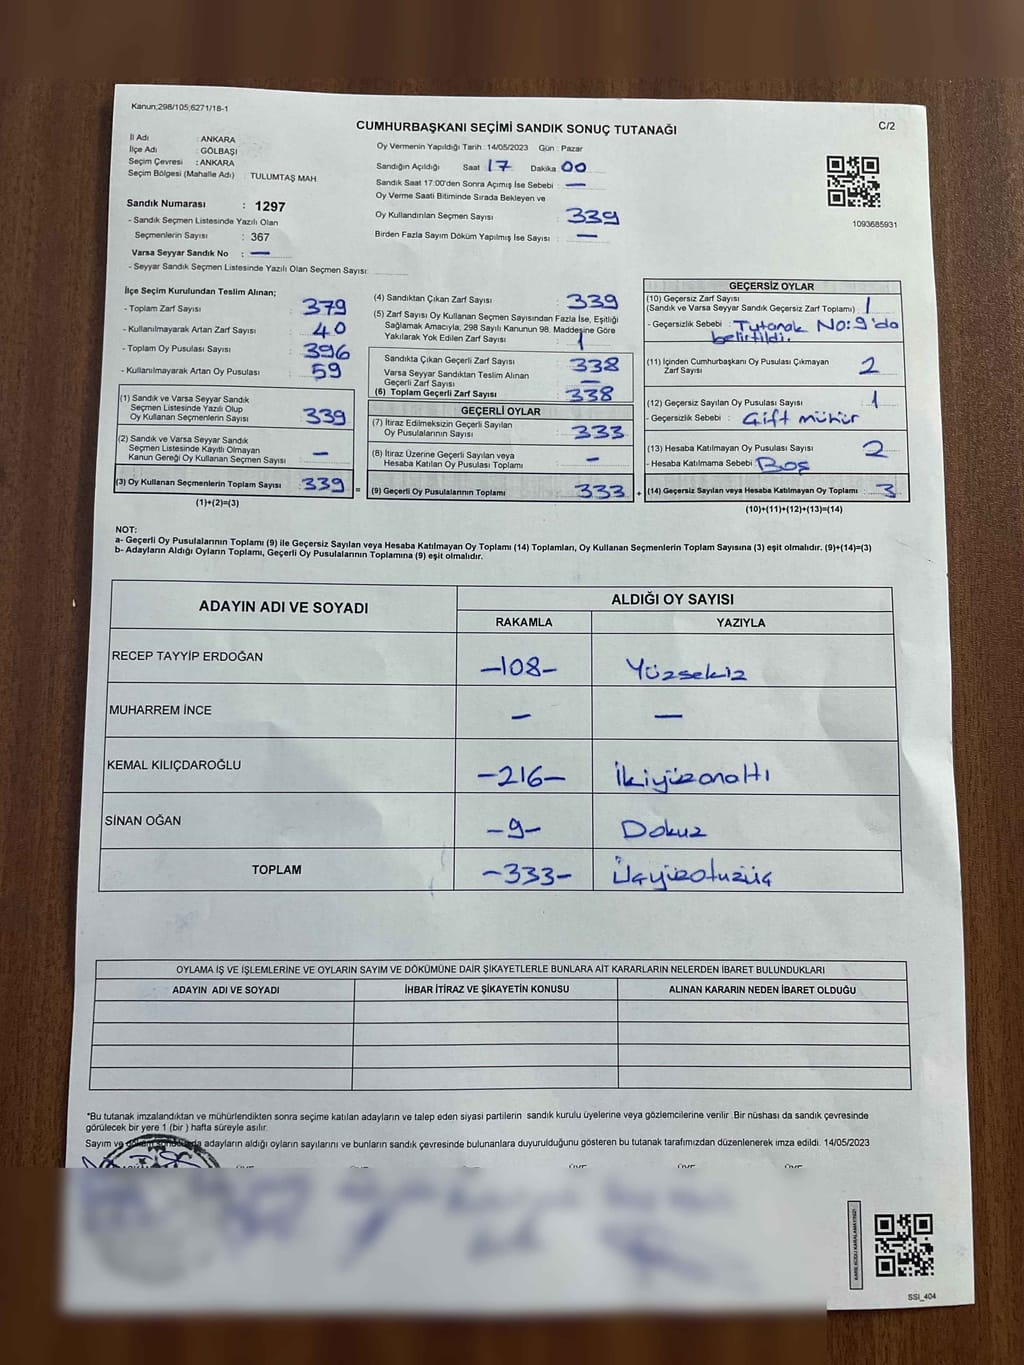 Kanun;298/105;6271/18-1
C/2
CUMHURBAŞKANI SEÇİMİ SANDIK SONUÇ TUTANAĞI
İl Adı : ANKARA
İlçe Adı : GÖLBAŞI
Seçim Çevresi : ANKARA
Seçim Bölgesi (Mahalle Adı) : TULUMTAŞ MAH.
Sandık Numarası : 1297
- Sandık Seçmen Listesinde Yazılı Olan
Seçmenlerin Sayısı : 367
Varsa Seyyar Sandık No : —
- Seyyar Sandık Seçmen Listesinde Yazılı Olan Seçmen Sayısı:
Oy Vermenin Yapıldığı Tarih : 14/05/2023 Gün : Pazar
Sandığın Açıldığı Saat 17 Dakika 00
Sandık Saat 17:00'den Sonra Açımış İse Sebebi : —
Oy Verme Saati Bitiminde Sırada Bekleyen ve
Oy Kullandırılan Seçmen Sayısı : 339
Birden Fazla Sayım Döküm Yapılmış İse Sayısı : —
1093685931
İlçe Seçim Kurulundan Teslim Alınan;
- Toplam Zarf Sayısı : 379
- Kullanılmayarak Artan Zarf Sayısı : 40
- Toplam Oy Pusulası Sayısı : 396
- Kullanılmayarak Artan Oy Pusulası : 59
(1) Sandık ve Varsa Seyyar Sandık
Seçmen Listesinde Yazılı Olup
Oy Kullanan Seçmenlerin Sayısı : 339
(2) Sandık ve Varsa Seyyar Sandık
Seçmen Listesinde Kayıtlı Olmayan
Kanun Gereği Oy Kullanan Seçmen Sayısı : —
(3) Oy Kullanan Seçmenlerin Toplam Sayısı : 339 =
(1)+(2)=(3)
(4) Sandıktan Çıkan Zarf Sayısı : 339
(5) Zarf Sayısı Oy Kullanan Seçmen Sayısından Fazla İse, Eşitliği
Sağlamak Amacıyla, 298 Sayılı Kanunun 98. Maddesine Göre
Yakılarak Yok Edilen Zarf Sayısı : 1
Sandıkta Çıkan Geçerli Zarf Sayısı : 338
Varsa Seyyar Sandıktan Teslim Alınan
Geçerli Zarf Sayısı : —
(6) Toplam Geçerli Zarf Sayısı : 338
GEÇERLİ OYLAR
(7) İtiraz Edilmeksizin Geçerli Sayılan
Oy Pusulalarının Sayısı : 333
(8) İtiraz Üzerine Geçerli Sayılan veya
Hesaba Katılan Oy Pusulası Toplamı : —
(9) Geçerli Oy Pusulalarının Toplamı : 333 +
GEÇERSİZ OYLAR
(10) Geçersiz Zarf Sayısı
(Sandık ve Varsa Seyyar Sandık Geçersiz Zarf Toplamı) : 1
- Geçersizlik Sebebi : Tutanak No:9'da
belirtildi.
(11) İçinden Cumhurbaşkanı Oy Pusulası Çıkmayan
Zarf Sayısı : 2
(12) Geçersiz Sayılan Oy Pusulası Sayısı : 1
- Geçersizlik Sebebi : Çift mühür
(13) Hesaba Katılmayan Oy Pusulası Sayısı : 2
- Hesaba Katılmama Sebebi : Boş
(14) Geçersiz Sayılan veya Hesaba Katılmayan Oy Toplamı : 3
(10)+(11)+(12)+(13)=(14)
NOT:
a- Geçerli Oy Pusulalarının Toplamı (9) ile Geçersiz Sayılan veya Hesaba Katılmayan Oy Toplamı (14) Toplamları, Oy Kullanan Seçmenlerin Toplam Sayısına (3) eşit olmalıdır. (9)+(14)=(3)
b- Adayların Aldığı Oyların Toplamı, Geçerli Oy Pusulalarının Toplamına (9) eşit olmalıdır.
ADAYIN ADI VE SOYADI ALDIĞI OY SAYISI
RAKAMLA YAZIYLA
RECEP TAYYİP ERDOĞAN –108– Yüzsekiz
MUHARREM İNCE – —
KEMAL KILIÇDAROĞLU –216– İkiyüzonaltı
SİNAN OĞAN –9– Dokuz
TOPLAM –333– Üçyüzotuzüç
OYLAMA İŞ VE İŞLEMLERİNE VE OYLARIN SAYIM VE DÖKÜMÜNE DAİR ŞİKAYETLERLE BUNLARA AİT KARARLARIN NELERDEN İBARET BULUNDUKLARI
ADAYIN ADI VE SOYADI İHBAR İTİRAZ VE ŞİKAYETİN KONUSU ALINAN KARARIN NEDEN İBARET OLDUĞU
*Bu tutanak imzalandıktan ve mühürlendikten sonra seçime katılan adayların ve talep eden siyasi partilerin sandık kurulu üyelerine veya gözlemcilerine verilir .Bir nüshası da sandık çevresinde
görülecek bir yere 1 (bir ) hafta süreyle asılır.
Sayım ve adayların aldığı oyların sayılarını ve bunların sandık çevresinde bulunanlara duyurulduğunu gösteren bu tutanak tarafımızdan düzenlenerek imza edildi. 14/05/2023
KARE KODU KARALAMAYINIZ!
SSI_404